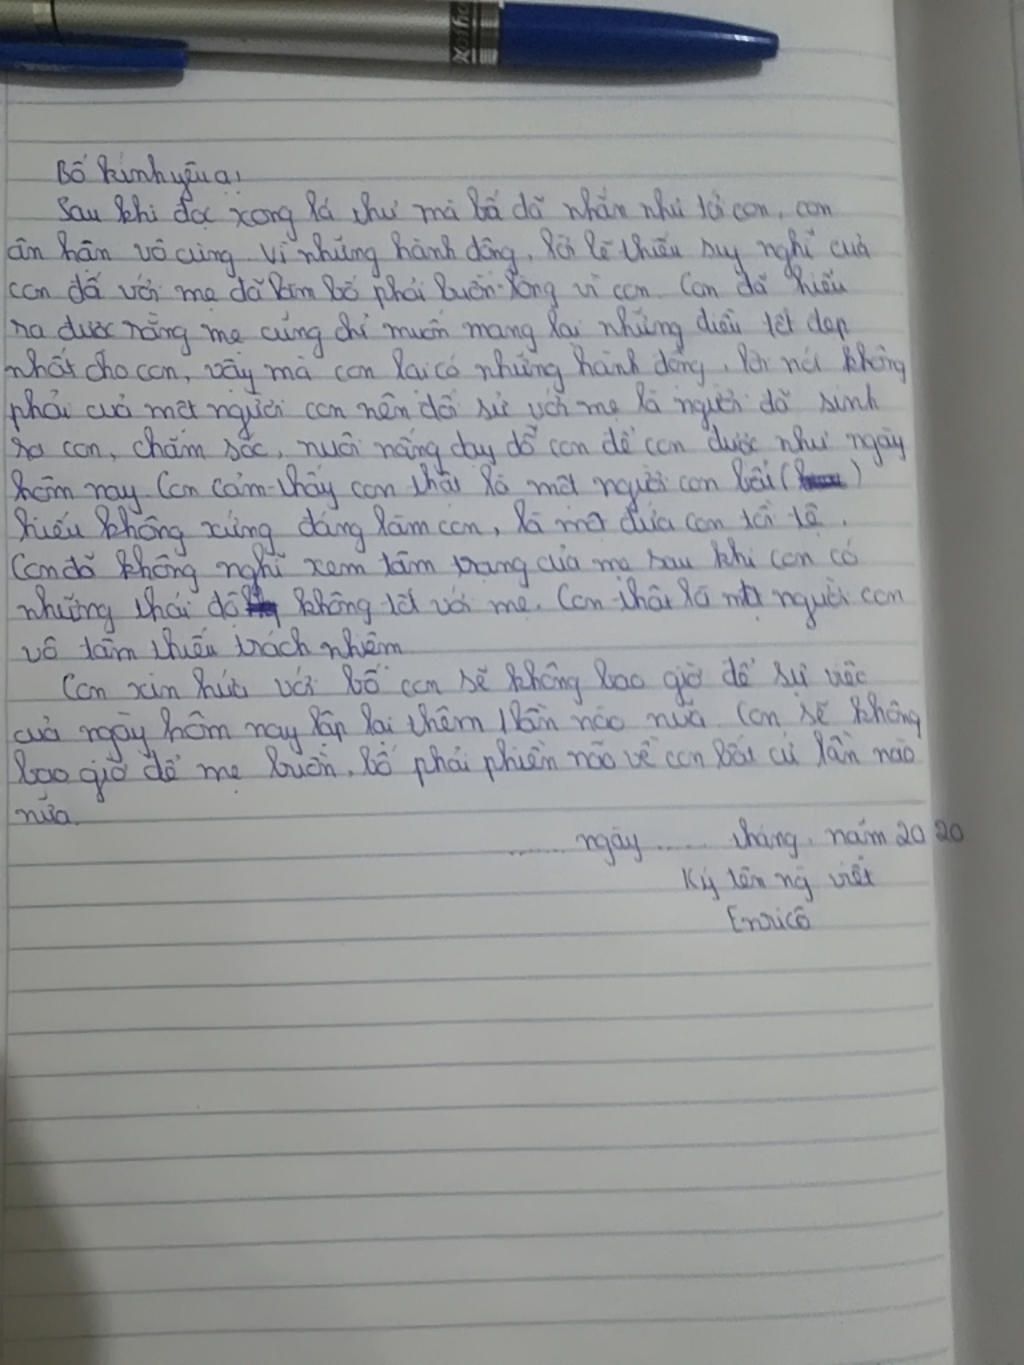 Bố kính yêu ạ!
Sau khi đọc xong lá thư mà bố đã nhắn nhủ tới con, con
ân hận vô cùng. Vì những hành động, lời lẽ thiếu suy nghĩ của
con đã với mẹ đã làm bố phải buồn lòng vì con. Con đã hiểu
ra được rằng mẹ cũng chỉ muốn mang lại những điều tốt đẹp
nhất cho con, vậy mà con lại có những hành động, lời nói không
phải của một người con nên đối xử với mẹ là người đã sinh
ra con, chăm sóc, nuôi nấng dạy dỗ con để con được như ngày
hôm nay. Con cảm thấy con thật là một người con bất ( )
hiếu không xứng đáng làm con, là một đứa con tồi tệ.
Con đã không nghĩ xem tâm trạng của mẹ sau khi con có
những thái độ không tốt với mẹ. Con thật là một người con
vô tâm thiếu trách nhiệm
Con xin hứa với bố con sẽ không bao giờ để sự việc
của ngày hôm nay lặp lại thêm 1 lần nào nữa. Con sẽ không
bao giờ để mẹ buồn, bố phải phiền não về con bất cứ lần nào
nữa.
....... ngày ....... tháng. năm 2020
Ký tên ng viết
Enricô